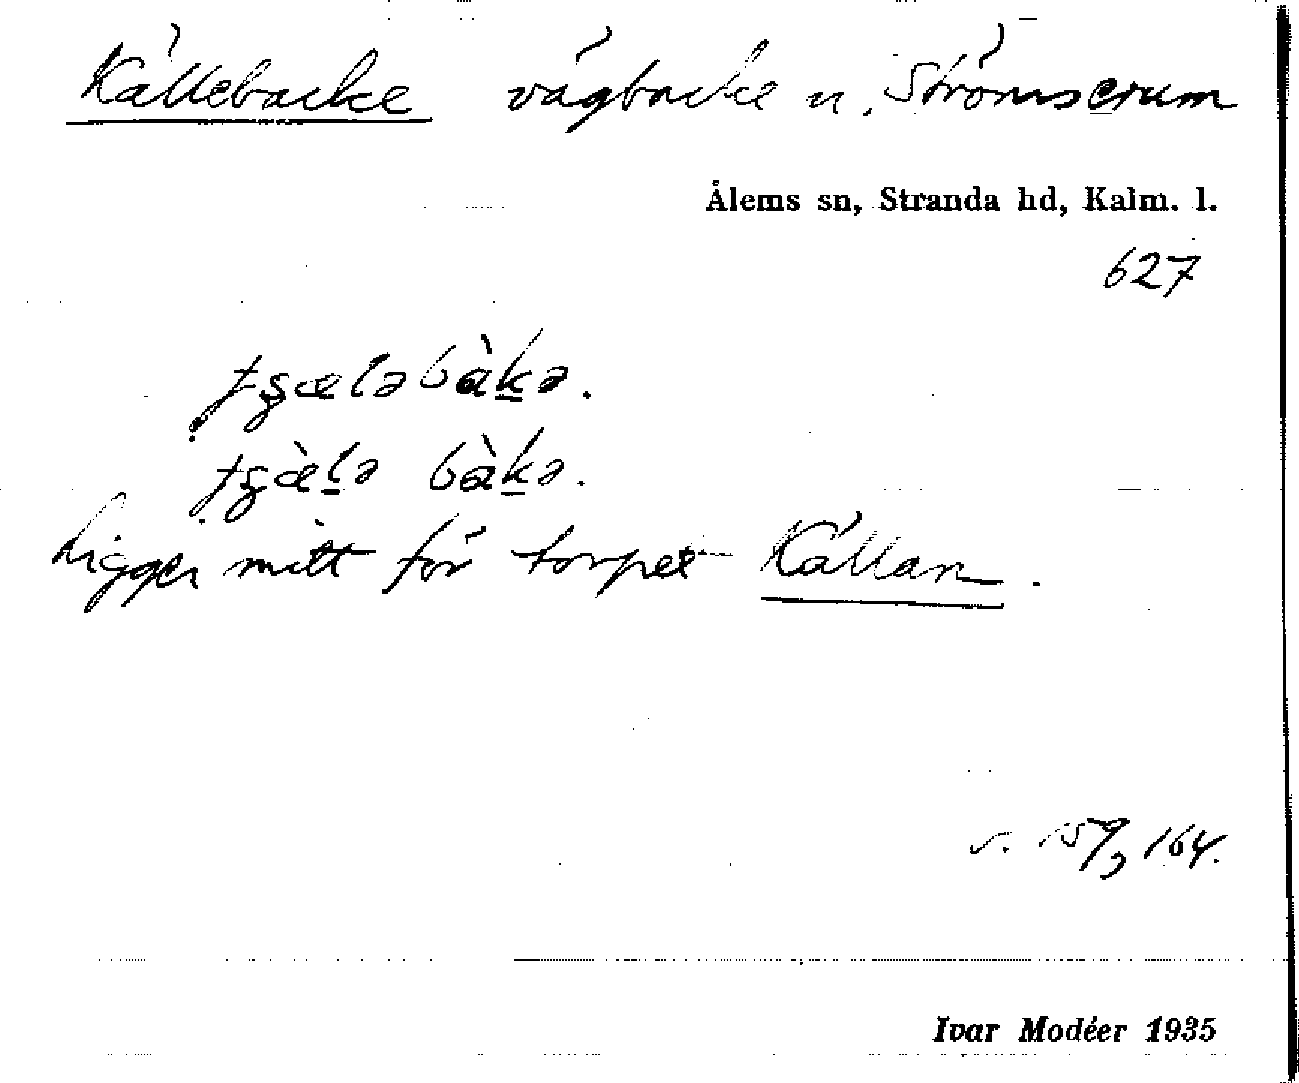 Källebacke vägbacke u. Strömserum
Ålems sn, Stranda hd, Kalm. l.
627
bàk̲ə.
bàk̲ə.
Ligger mitt för torpet Källan.
s. 159, 164.
Ivar Modéer 1935